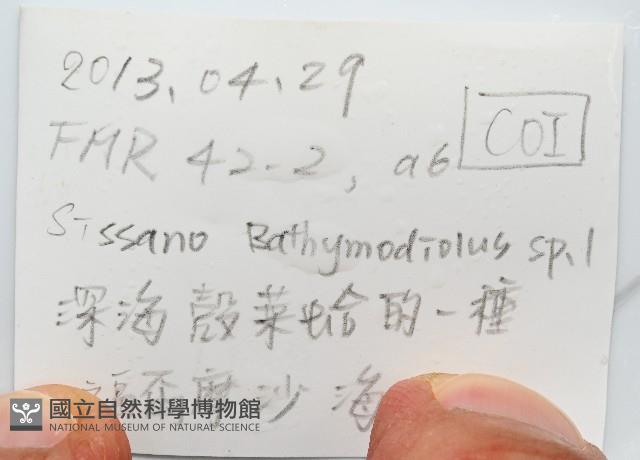 2013.04.29
FMR 42-2, a6 COI
Sissano Bathymodiolus sp.1
深海殼菜蛤的一種
沙海
國立自然科學博物館
NATIONAL MUSEUM OF NATURAL SCIENCE